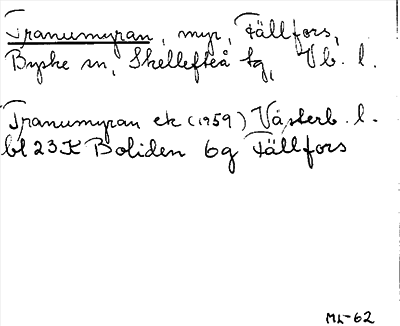 Tranumyran, myr, Fällfors,
Byske sn, Skellefteå tg, Vb. l.
Tranumyran ek (1959) Västerb. l.
bl 23K Boliden 6g Fällfors
ML-62